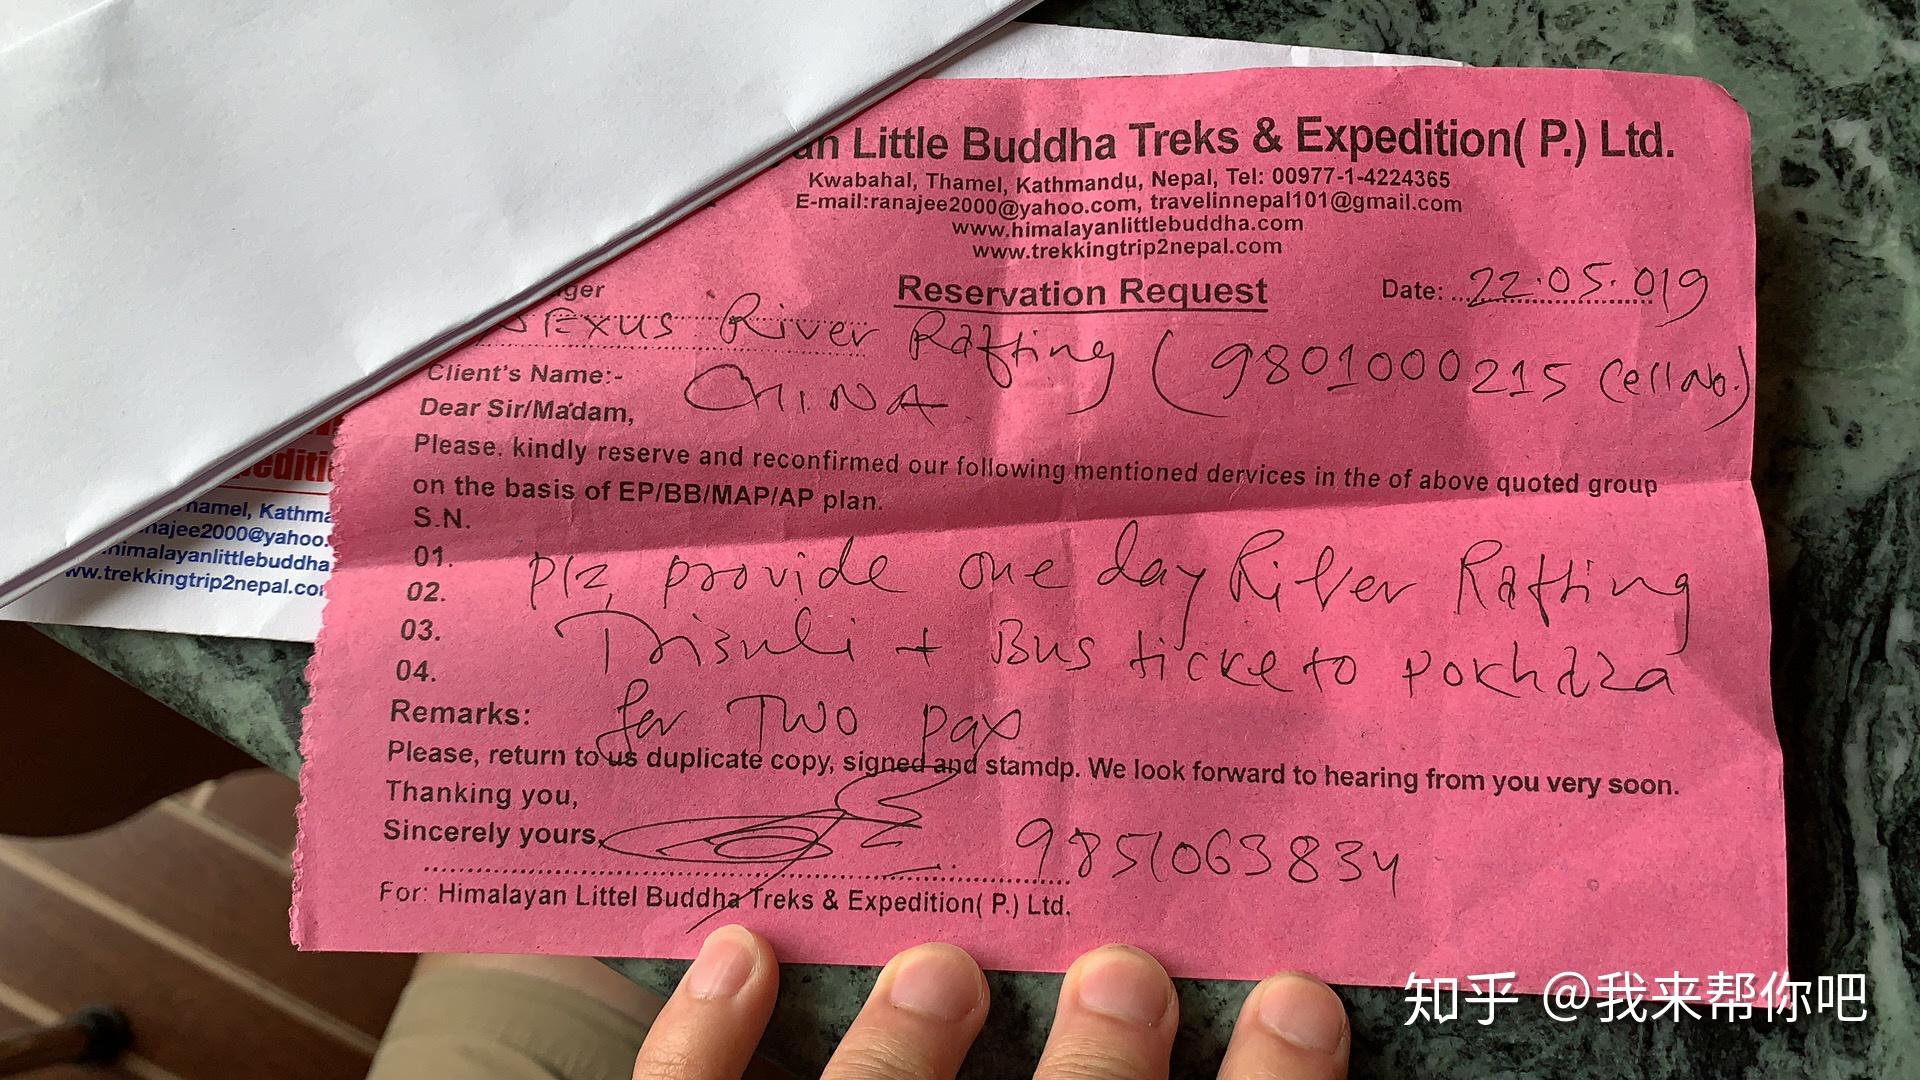 an Little Buddha Treks & Expedition( P.) Ltd.
Kwabahal, Thamel, Kathmandu, Nepal, Tel: 00977-1-4224365
E-mail:ranajee2000@yahoo.com, travelinnepal101@gmail.com
www.himalayanlittlebuddha.com
www.trekkingtrip2nepal.com
ager
Reservation Request
Date: 22.05.019
River Rafting (9801000215 Cell No.)
Client's Name:- CHINA
Dear Sir/Madam,
Please, kindly reserve and reconfirmed our following mentioned dervices in the of above quoted group
on the basis of EP/BB/MAP/AP plan.
S.N.
01. Plz provide one day River Rafting
02.
03. Trisuli + Bus ticke to pokhara
04.
Remarks: for Two pax
Please, return to us duplicate copy, signed and stamdp. We look forward to hearing from you very soon.
Thanking you,
Sincerely yours,
9851063834
For: Himalayan Littel Buddha Treks & Expedition( P.) Ltd.
editi
hamel, Kathma
najee2000@yahoo.
himalayanlittlebuddha
ww.trekkingtrip2nepal.co
知乎 @我来帮你吧